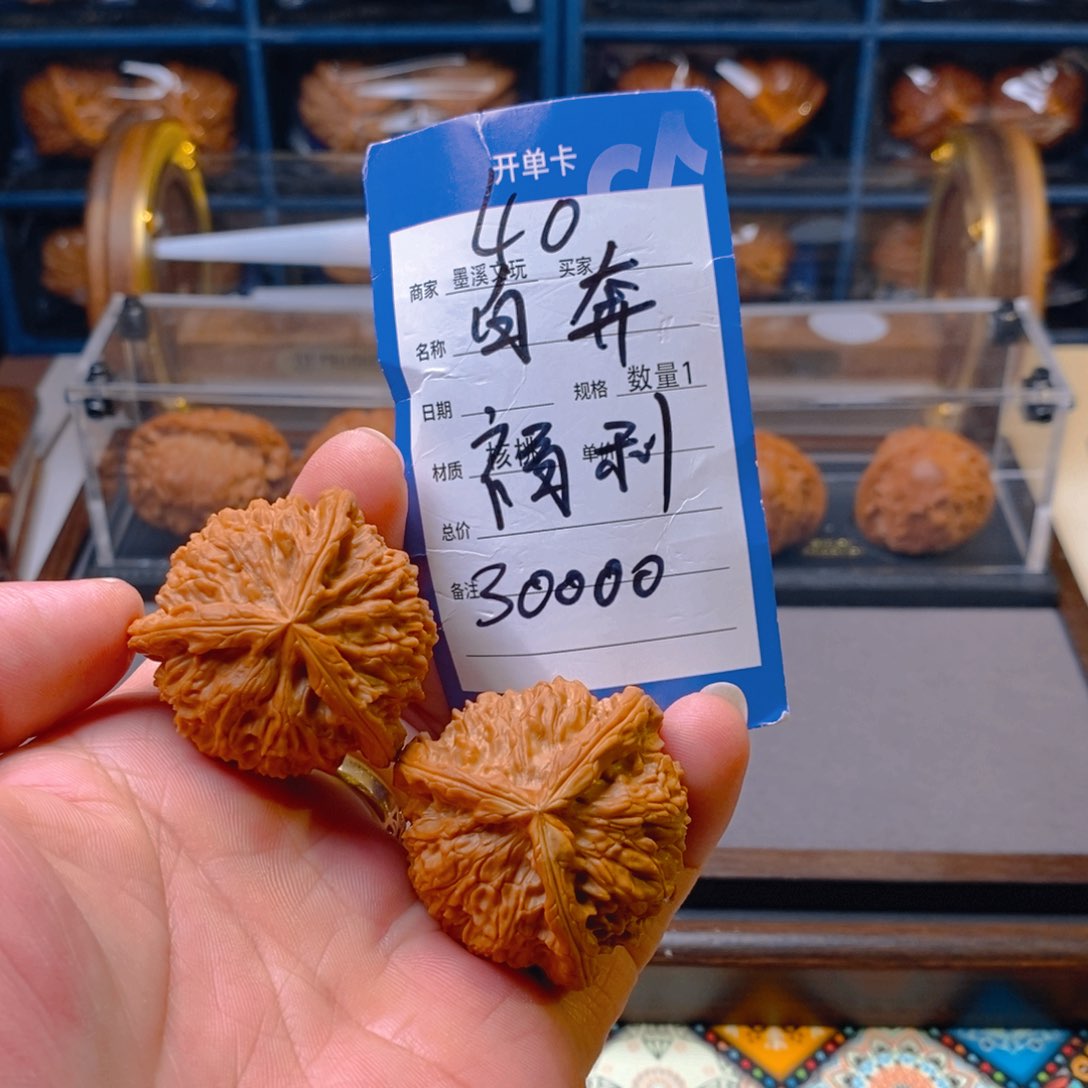 开单卡
40
商家 墨溪文玩 买家
白奔
名称
日期 规格 数量1
福利
材质 核桃 单价
总价
备注 30000